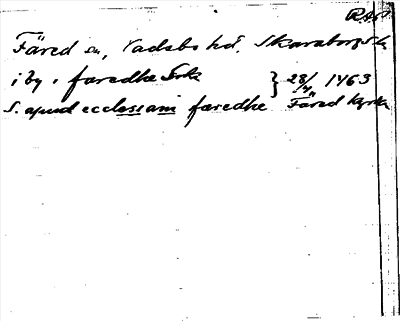 RAP
Färed sn, Vadsbo hd, Skaraborgs l.
i by, færedhe Sok } 28/4 1463
S. apud ecclesiam færedhe Färed kyrka